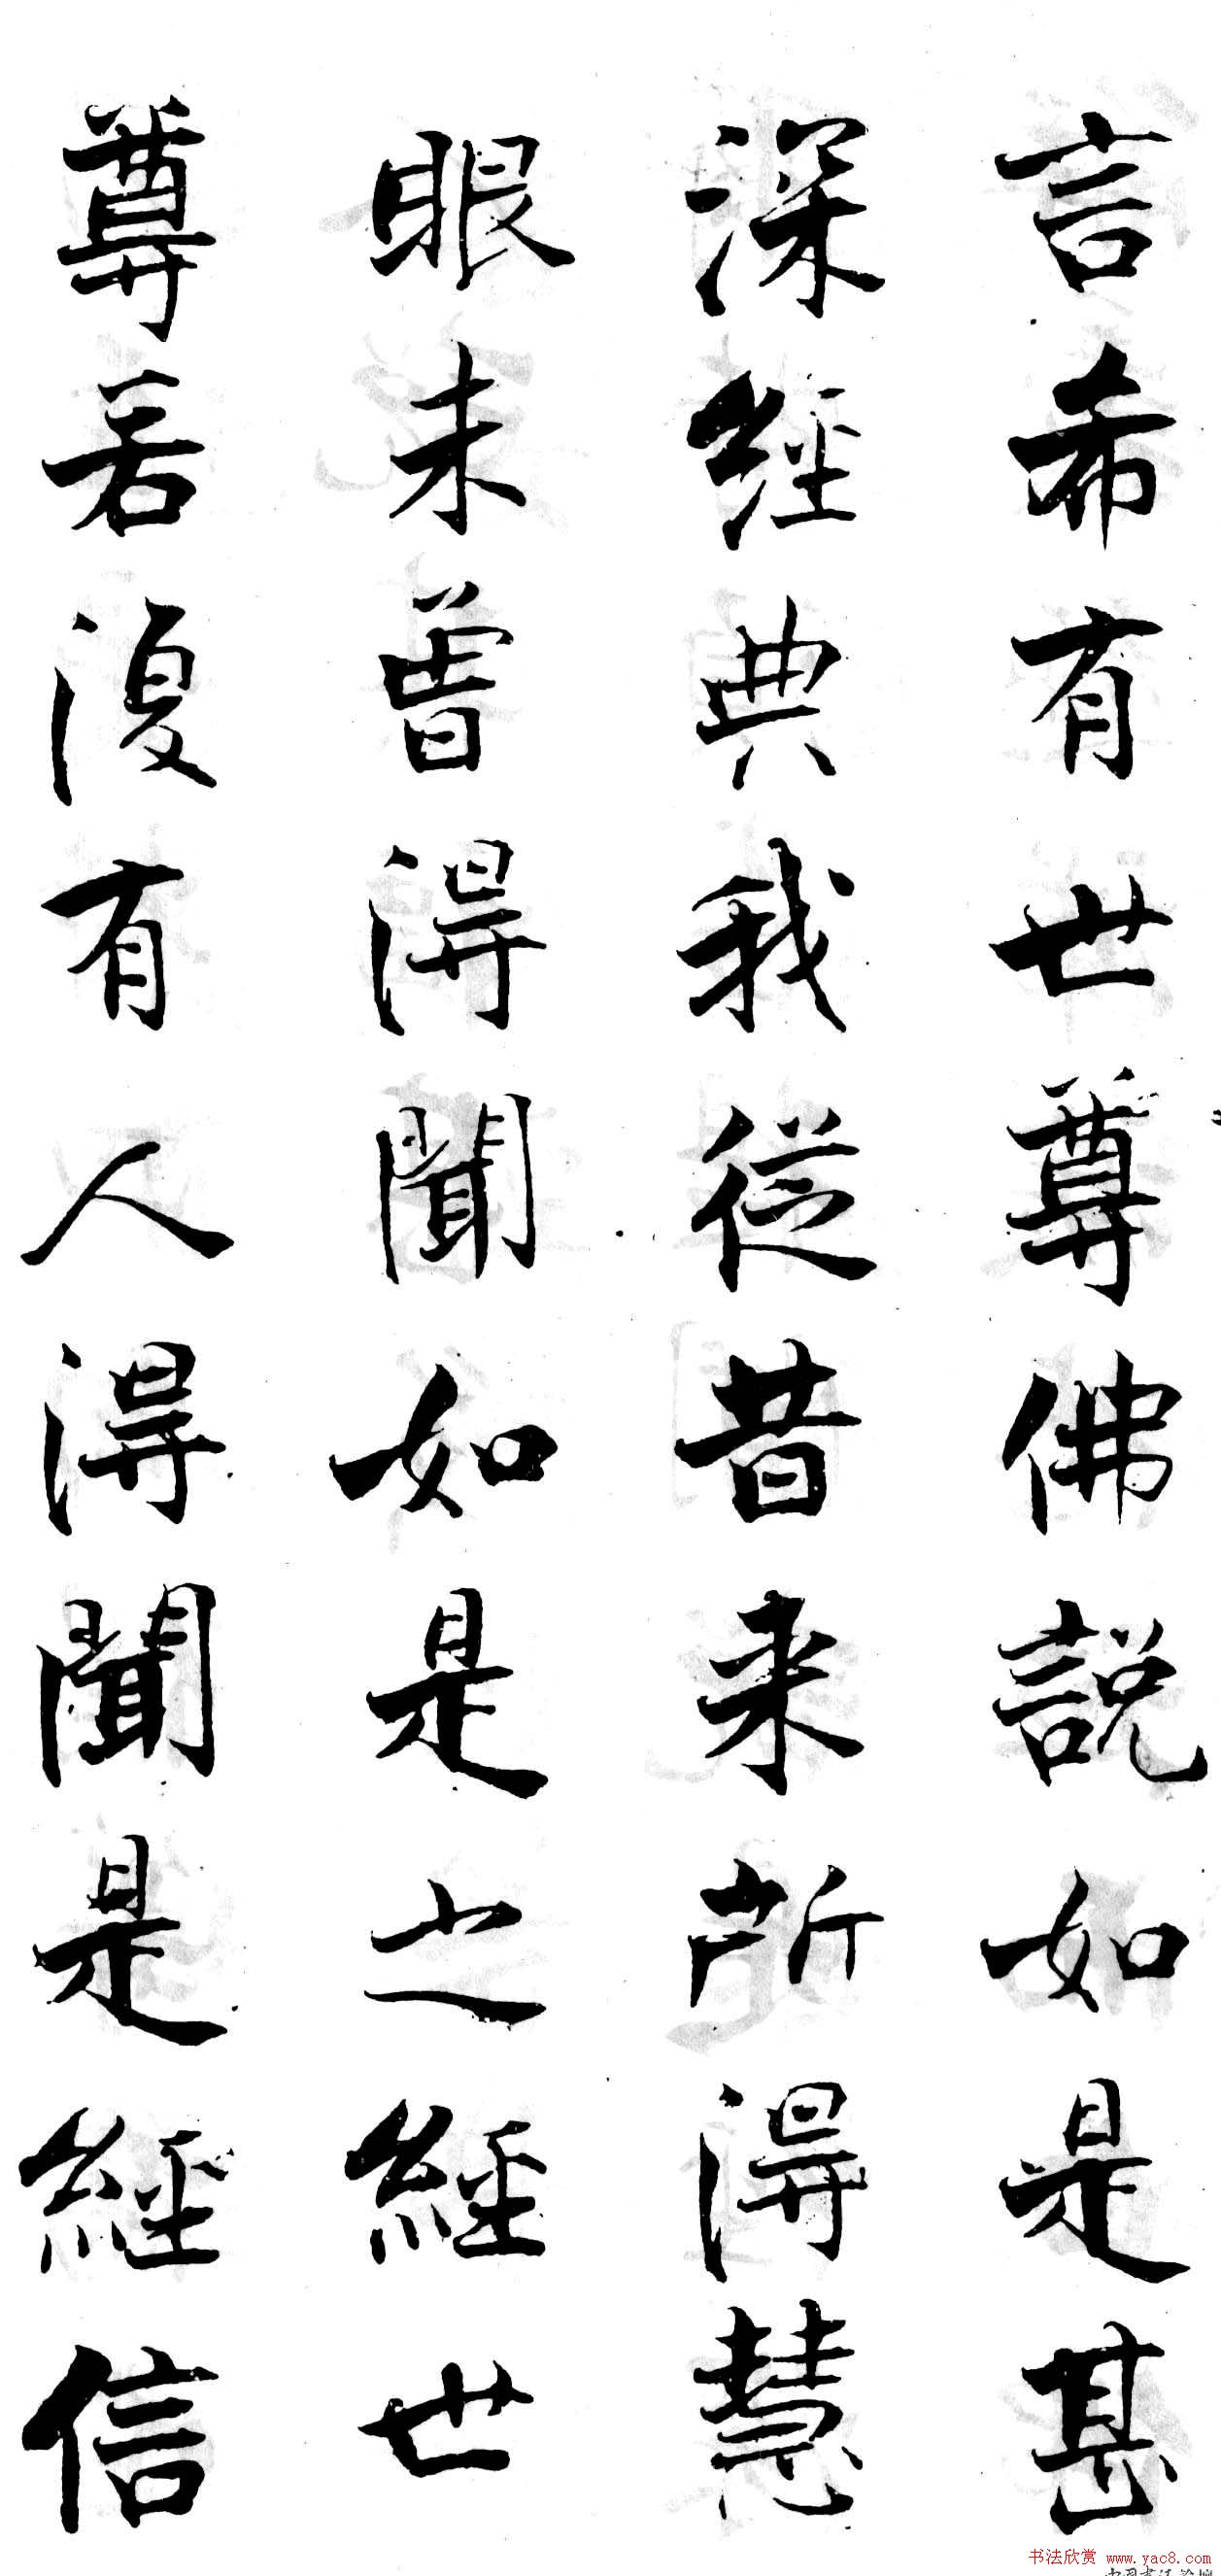 言希有世尊佛說如是甚
深經典我從昔来所得慧
眼未曾得聞如是之經世
尊若復有人得聞是經信
书法欣赏 www.yac8.com